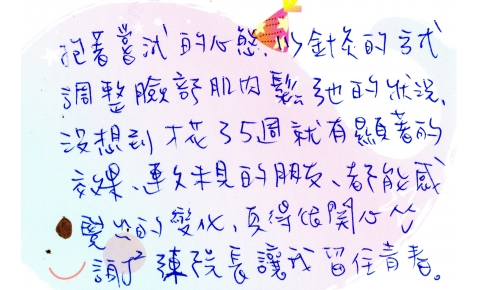 抱著嘗試的心態,以針灸的方式
調整臉部肌肉鬆弛的狀況,
沒想到才花了5週就有顯著的
效果、連久未見的朋友、都能感
覺出的變化,真得很開心^^
謝謝陳院長讓我留住青春。